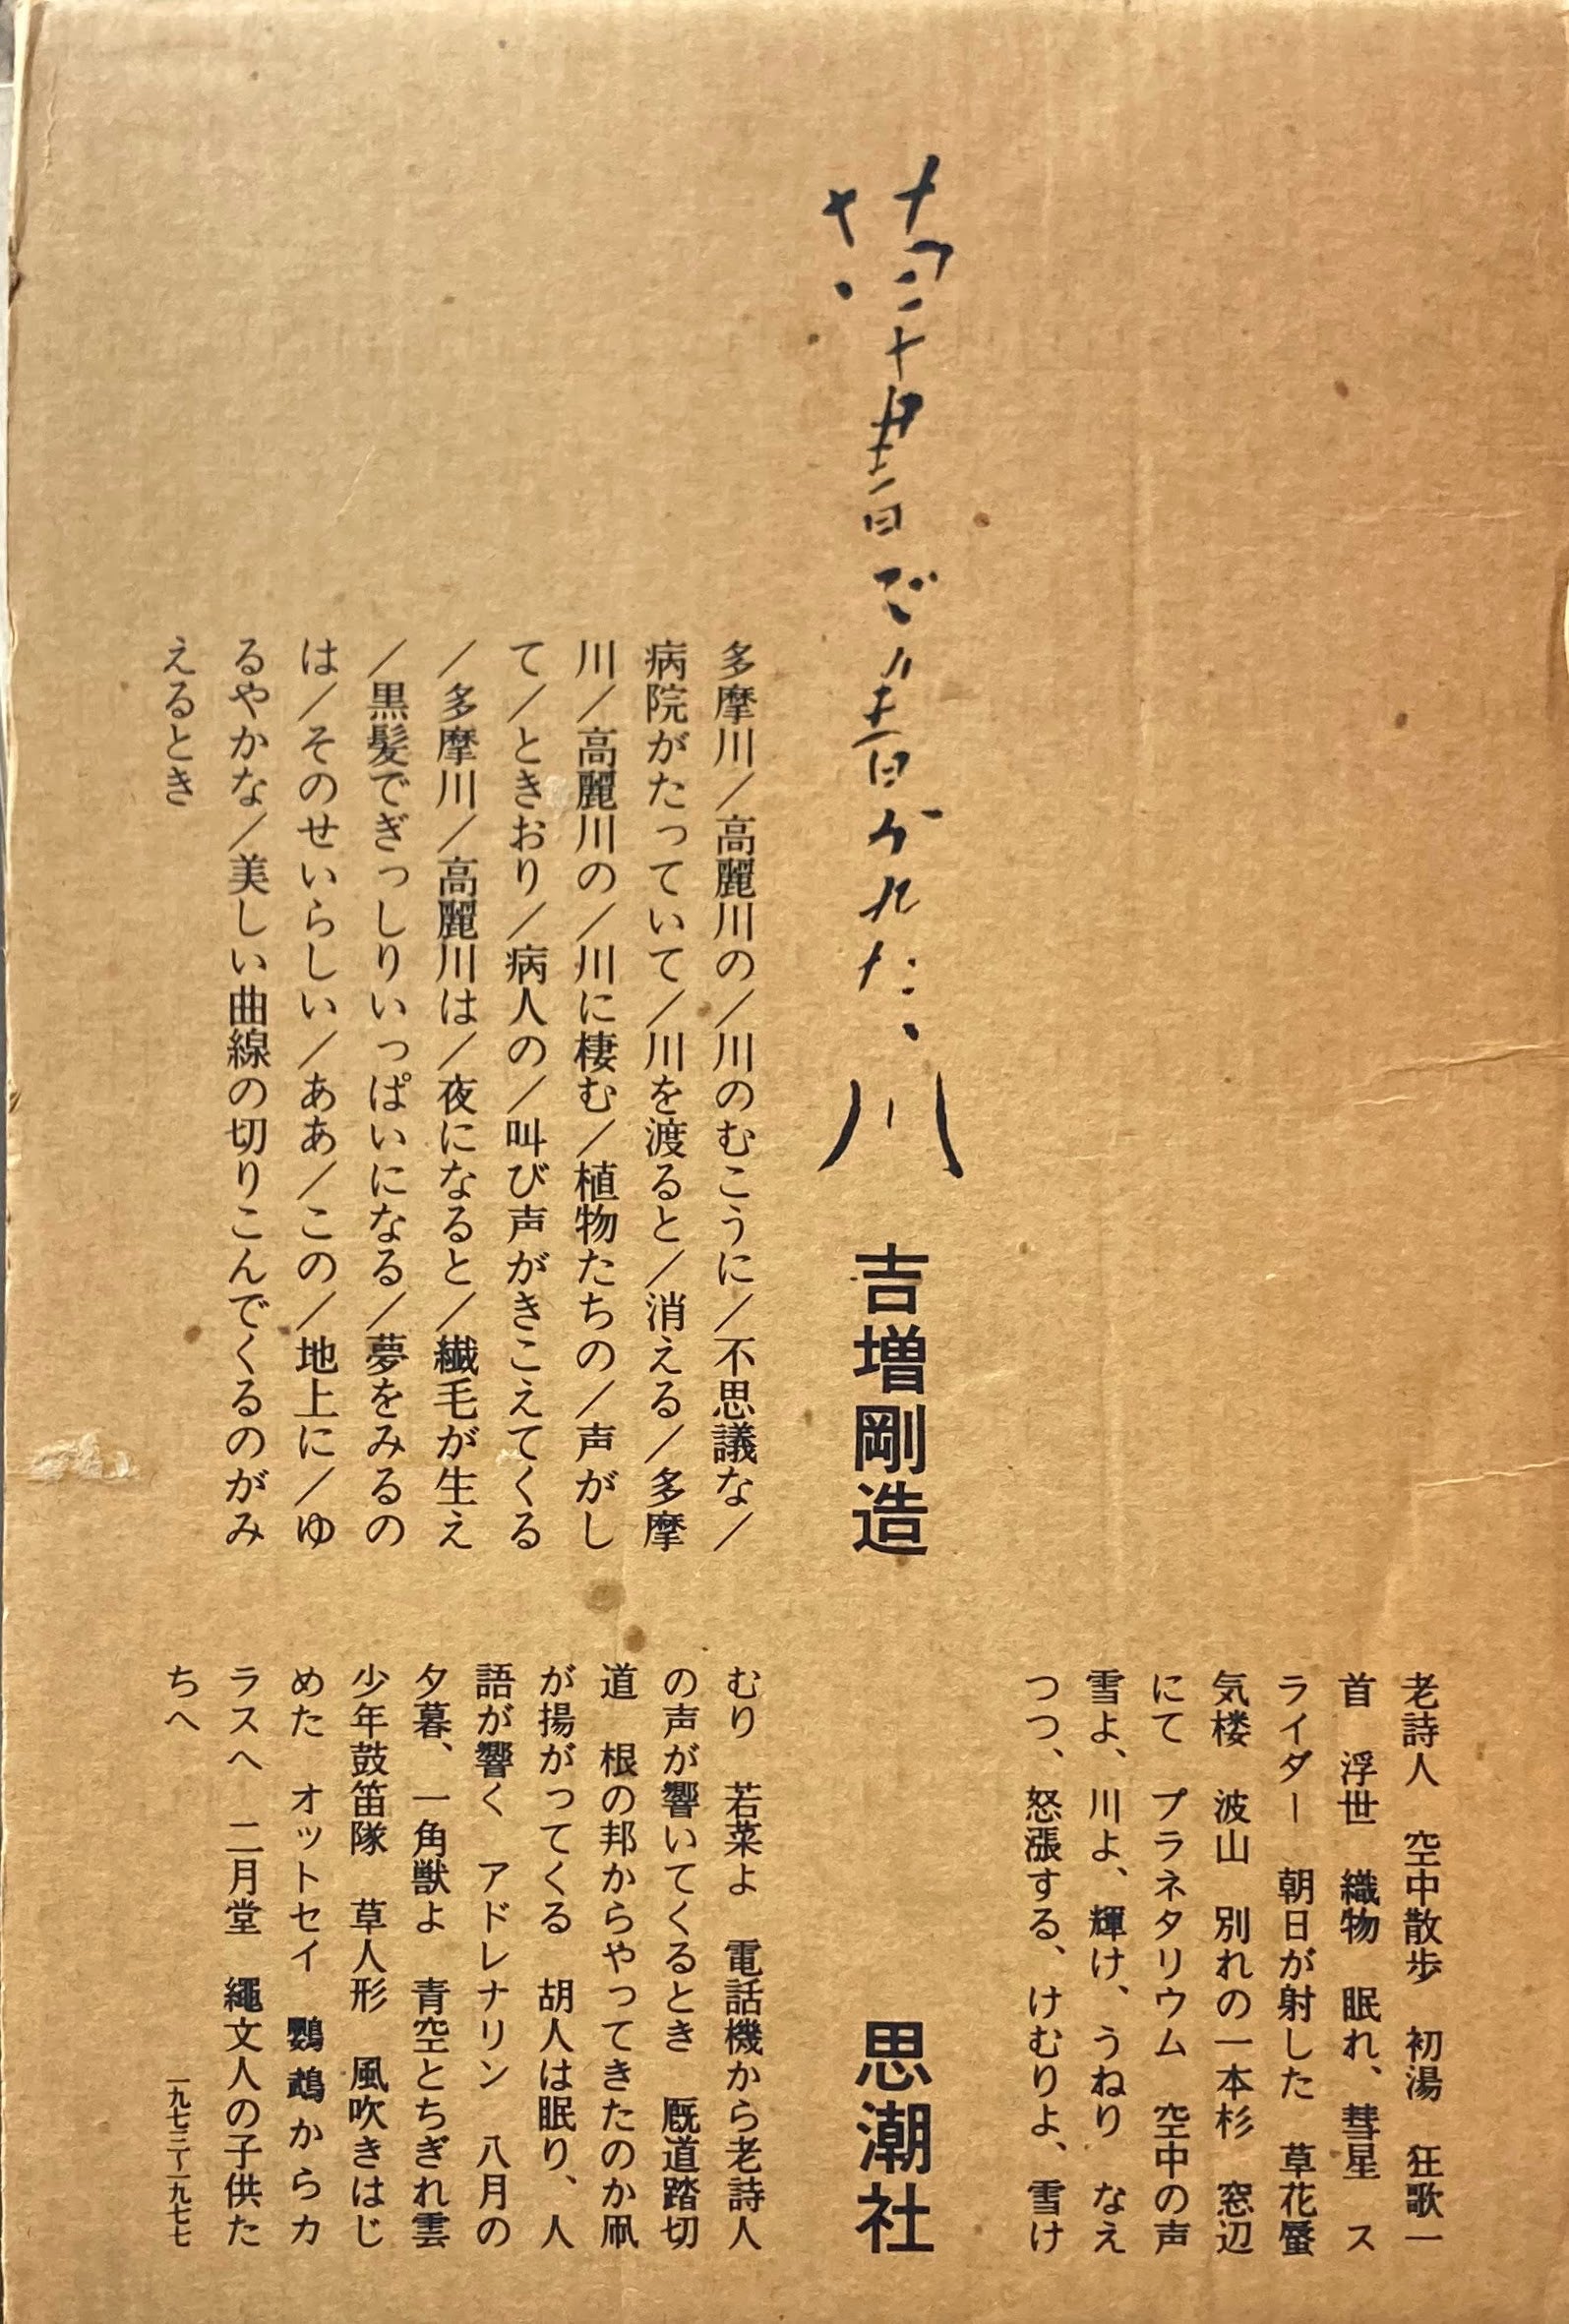 草書で書かれた、川
吉増剛造
思潮社
多摩川／高麗川の／川のむこうに／不思議な／
病院がたっていて／川を渡ると／消える／多摩
川／高麗川の／川に棲む／植物たちの／声がし
て／ときおり／病人の／叫び声がきこえてくる
／多摩川／高麗川は／夜になると／繊毛が生え
／黒髪でぎっしりいっぱいになる／夢をみるの
は／そのせいらしい／ああ／この／地上に／ゆ
るやかな／美しい曲線の切りこんでくるのがみ
えるとき
老詩人　空中散歩　初湯　狂歌一
首　浮世　織物　眠れ、彗星　ス
ライダー　朝日が射した　草花蜃
気楼　波山　別れの一本杉　窓辺
にて　プラネタリウム　空中の声
雪よ、川よ、輝け、うねり　なえ
つつ、怒漲する、けむりよ、雪け
むり　若菜よ　電話機から老詩人
の声が響いてくるとき　厩道踏切
道　根の邦からやってきたのか凧
が揚がってくる　胡人は眠り、人
語が響く　アドレナリン　八月の
夕暮、一角獣よ　青空とちぎれ雲
少年鼓笛隊　草人形　風吹きはじ
めた　オットセイ　鸚鵡からカ
ラスへ　二月堂　繩文人の子供た
ちへ
一九七三～一九七七